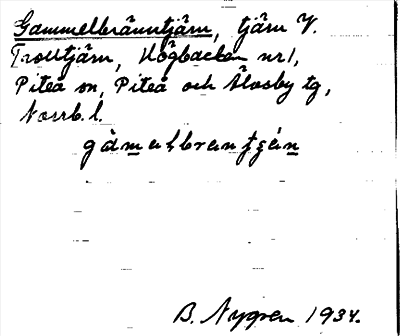 Gammelbränntjärn, tjärn V.
Trolltjärn, Högbacken nr1,
Piteå sn, Piteå och Älvsby tg,
Norrb. l.
B. Nygren 1934.